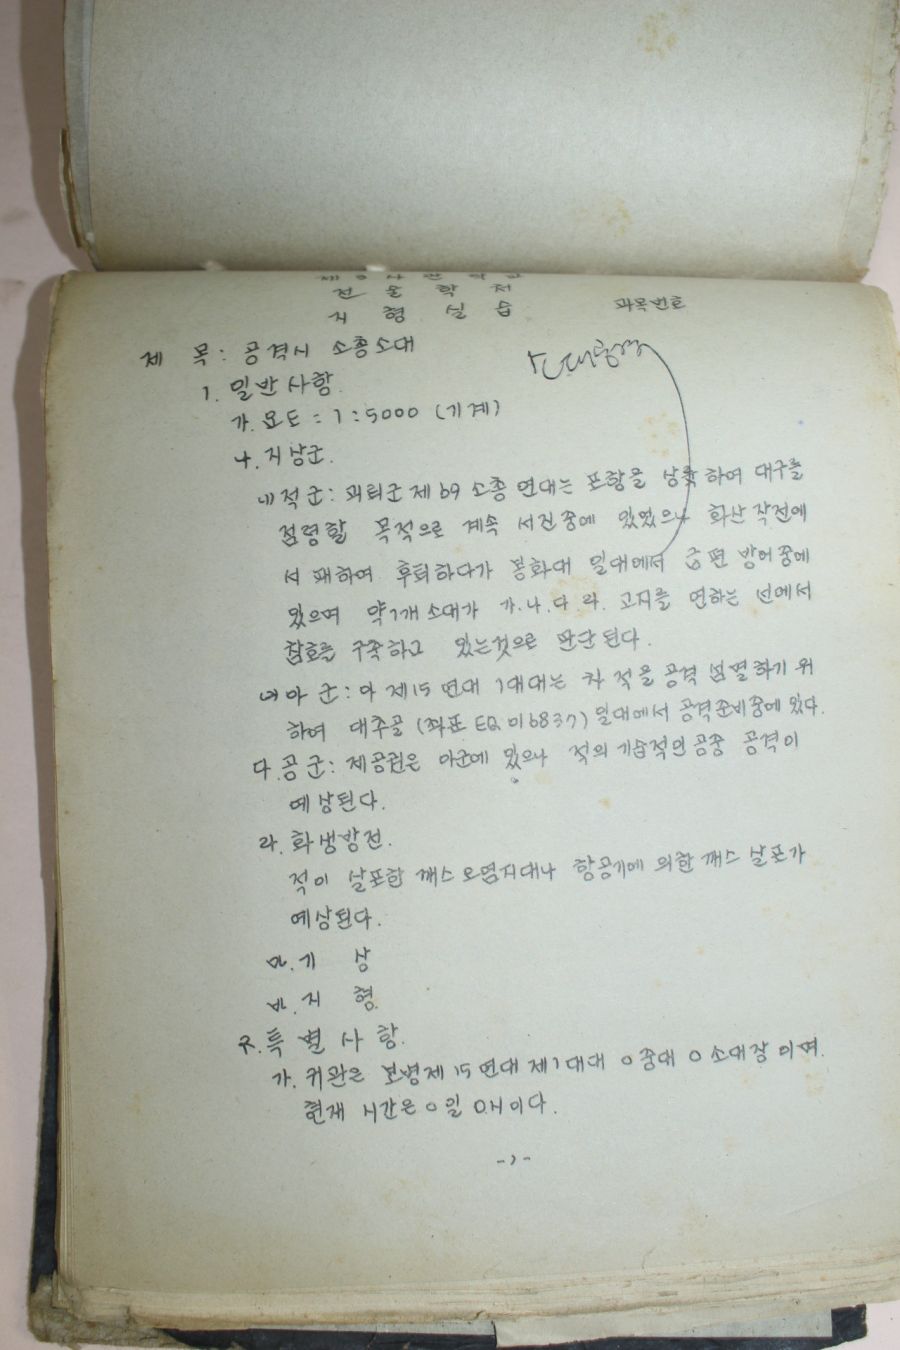 제 3 사 관 학 교
전 술 학 처
지 형 실 습 과목번호
제 목 : 공격시 소총소대
1. 일반사항
가. 요도 : 1:5000 (기계)
나. 지상군.
적군 : 괴뢰군 제 69 소총 연대는 포항을 상륙하여 대구를
점령할 목적으로 계속 서진중에 있었으나 화산 작전에
서 패하여 후퇴하다가 봉화대 일대에서 급편 방어중에
있으며 약1개 소대가 가.나.다.라. 고지를 연하는 선에서
참호를 구축하고 있는것으로 판단된다.
아 군 : 아 제15 연대 1대대는 차 적을 공격 섬멸하기 위
하여 대추골 (좌표 EQ 016837) 일대에서 공격준비중에 있다.
다. 공 군 : 제공권은 아군에 있으나 적의 기습적인 공중 공격이
예상된다.
라. 화생방전.
적이 살포한 깨스 오염지대나 항공기에 의한 깨스 살포가
예상된다.
마. 기 상
바. 지 형.
2. 특 별 사 항.
가. 귀관은 보병제 15 연대 제1대대 0중대 0소대장 이며.
현재 시간은 0일 0시이다.
-1-